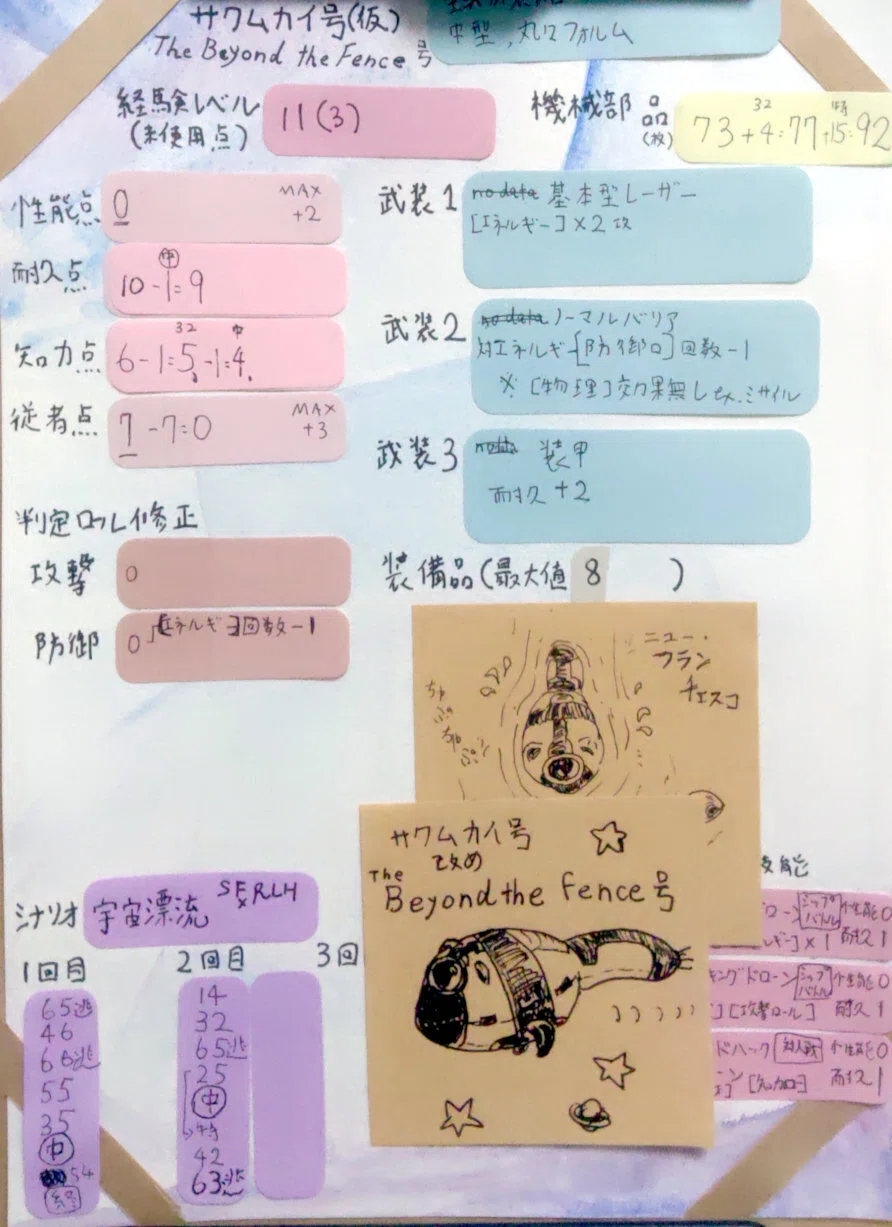 サワムカイ号(仮)
The Beyond the Fence 号
中型,丸いフォルム
経験レベル
(未使用点)
11(3)
機械部品
(枚)
32 特
73+4=77+15=92
性能点
0
MAX
+2
耐久点
中
10-1=9
知力点
32 中
6-1=5-1=4
従者点
7-7=0
MAX
+3
判定ロール修正
攻撃
0
防御
0 [エネルギー]回数-1
武装1
no data 基本型レーザー
[エネルギー]×2攻
武装2
no data ノーマルバリア
対エネルギー[防御ロ]回数-1
※[物理]効果無し ex.ミサイル
武装3
no data 装甲
耐久+2
装備品(最大値 8 )
ニュー・
フラン
チェスコ
ちゃ
ぷ
ちゃ
ぷん
サワムカイ号
改め
The
Beyond the Fence号
技能
ローン シップバトル 性能0
ルギー]×1 耐久1
キングドローン シップバトル 性能0
][攻撃ロール] 耐久1
ドハック 対人戦 性能0
[知力ロ] 耐久1
シナリオ
宇宙漂流
1回目
65逃
46
66逃
55
35
中
54
終
2回目
14
32
65逃
25
中
特
42
63逃
3回